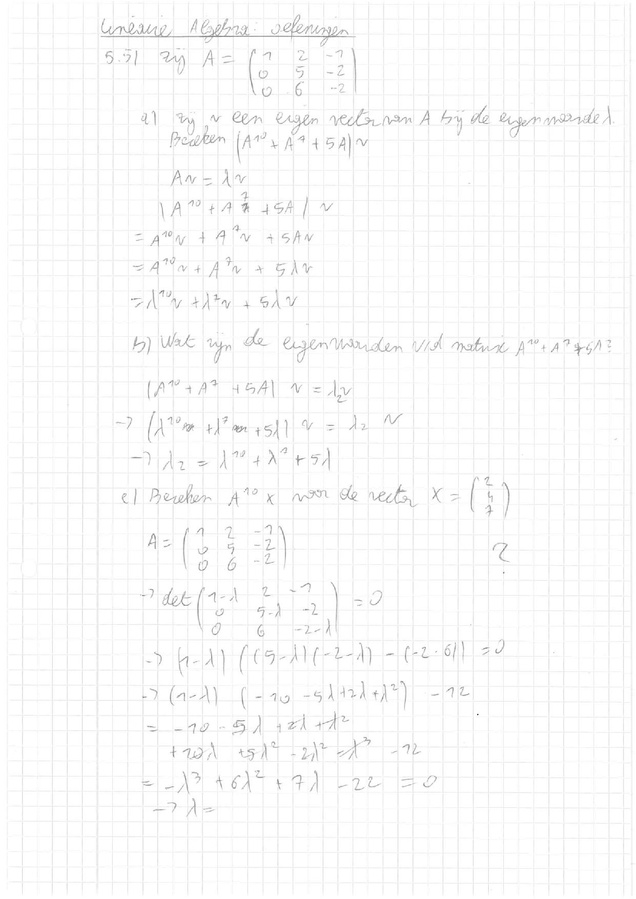 Lineaire Algebra: oefeningen
5.51 zij A = (1 2 -1
0 5 -2
0 6 -2)
a) zij v een eigen vector van A bij de eigenwaarde λ.
Bereken (A^10 + A^7 + 5A) v
Av = λv
(A^10 + A^7 + 5A) v
= A^10 v + A^7 v + 5Av
= A^10 v + A^7 v + 5λv
= λ^10 v + λ^7 v + 5λv
b) Wat zijn de eigenwaarden v/d matrix A^10 + A^7 + 5A?
(A^10 + A^7 + 5A) v = λ2 v
-> (λ^10 + λ^7 + 5λ) v = λ2 v
-> λ2 = λ^10 + λ^7 + 5λ
c) Bereken A^10 x voor de vector X = (2
4
7)
A = (1 2 -1
0 5 -2
0 6 -2)
?
-> det (1-λ 2 -1
0 5-λ -2
0 6 -2-λ) = 0
-> (1-λ) ((5-λ)(-2-λ) - (-2·6)) = 0
-> (1-λ) (-10 -5λ+2λ+λ²) - 12
= -10 - 5λ + 2λ + λ²
+10λ +5λ² -2λ² -λ³ -12
= -λ³ + 6λ² + 7λ - 22 = 0
-> λ =